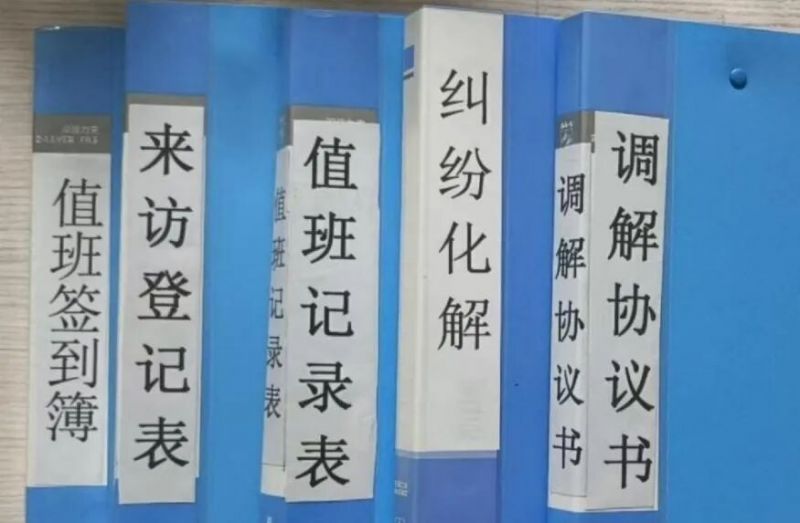 值班签到簿
来访登记表
值班记录表
值班记录表
纠纷化解
调解协议书
调解协议书